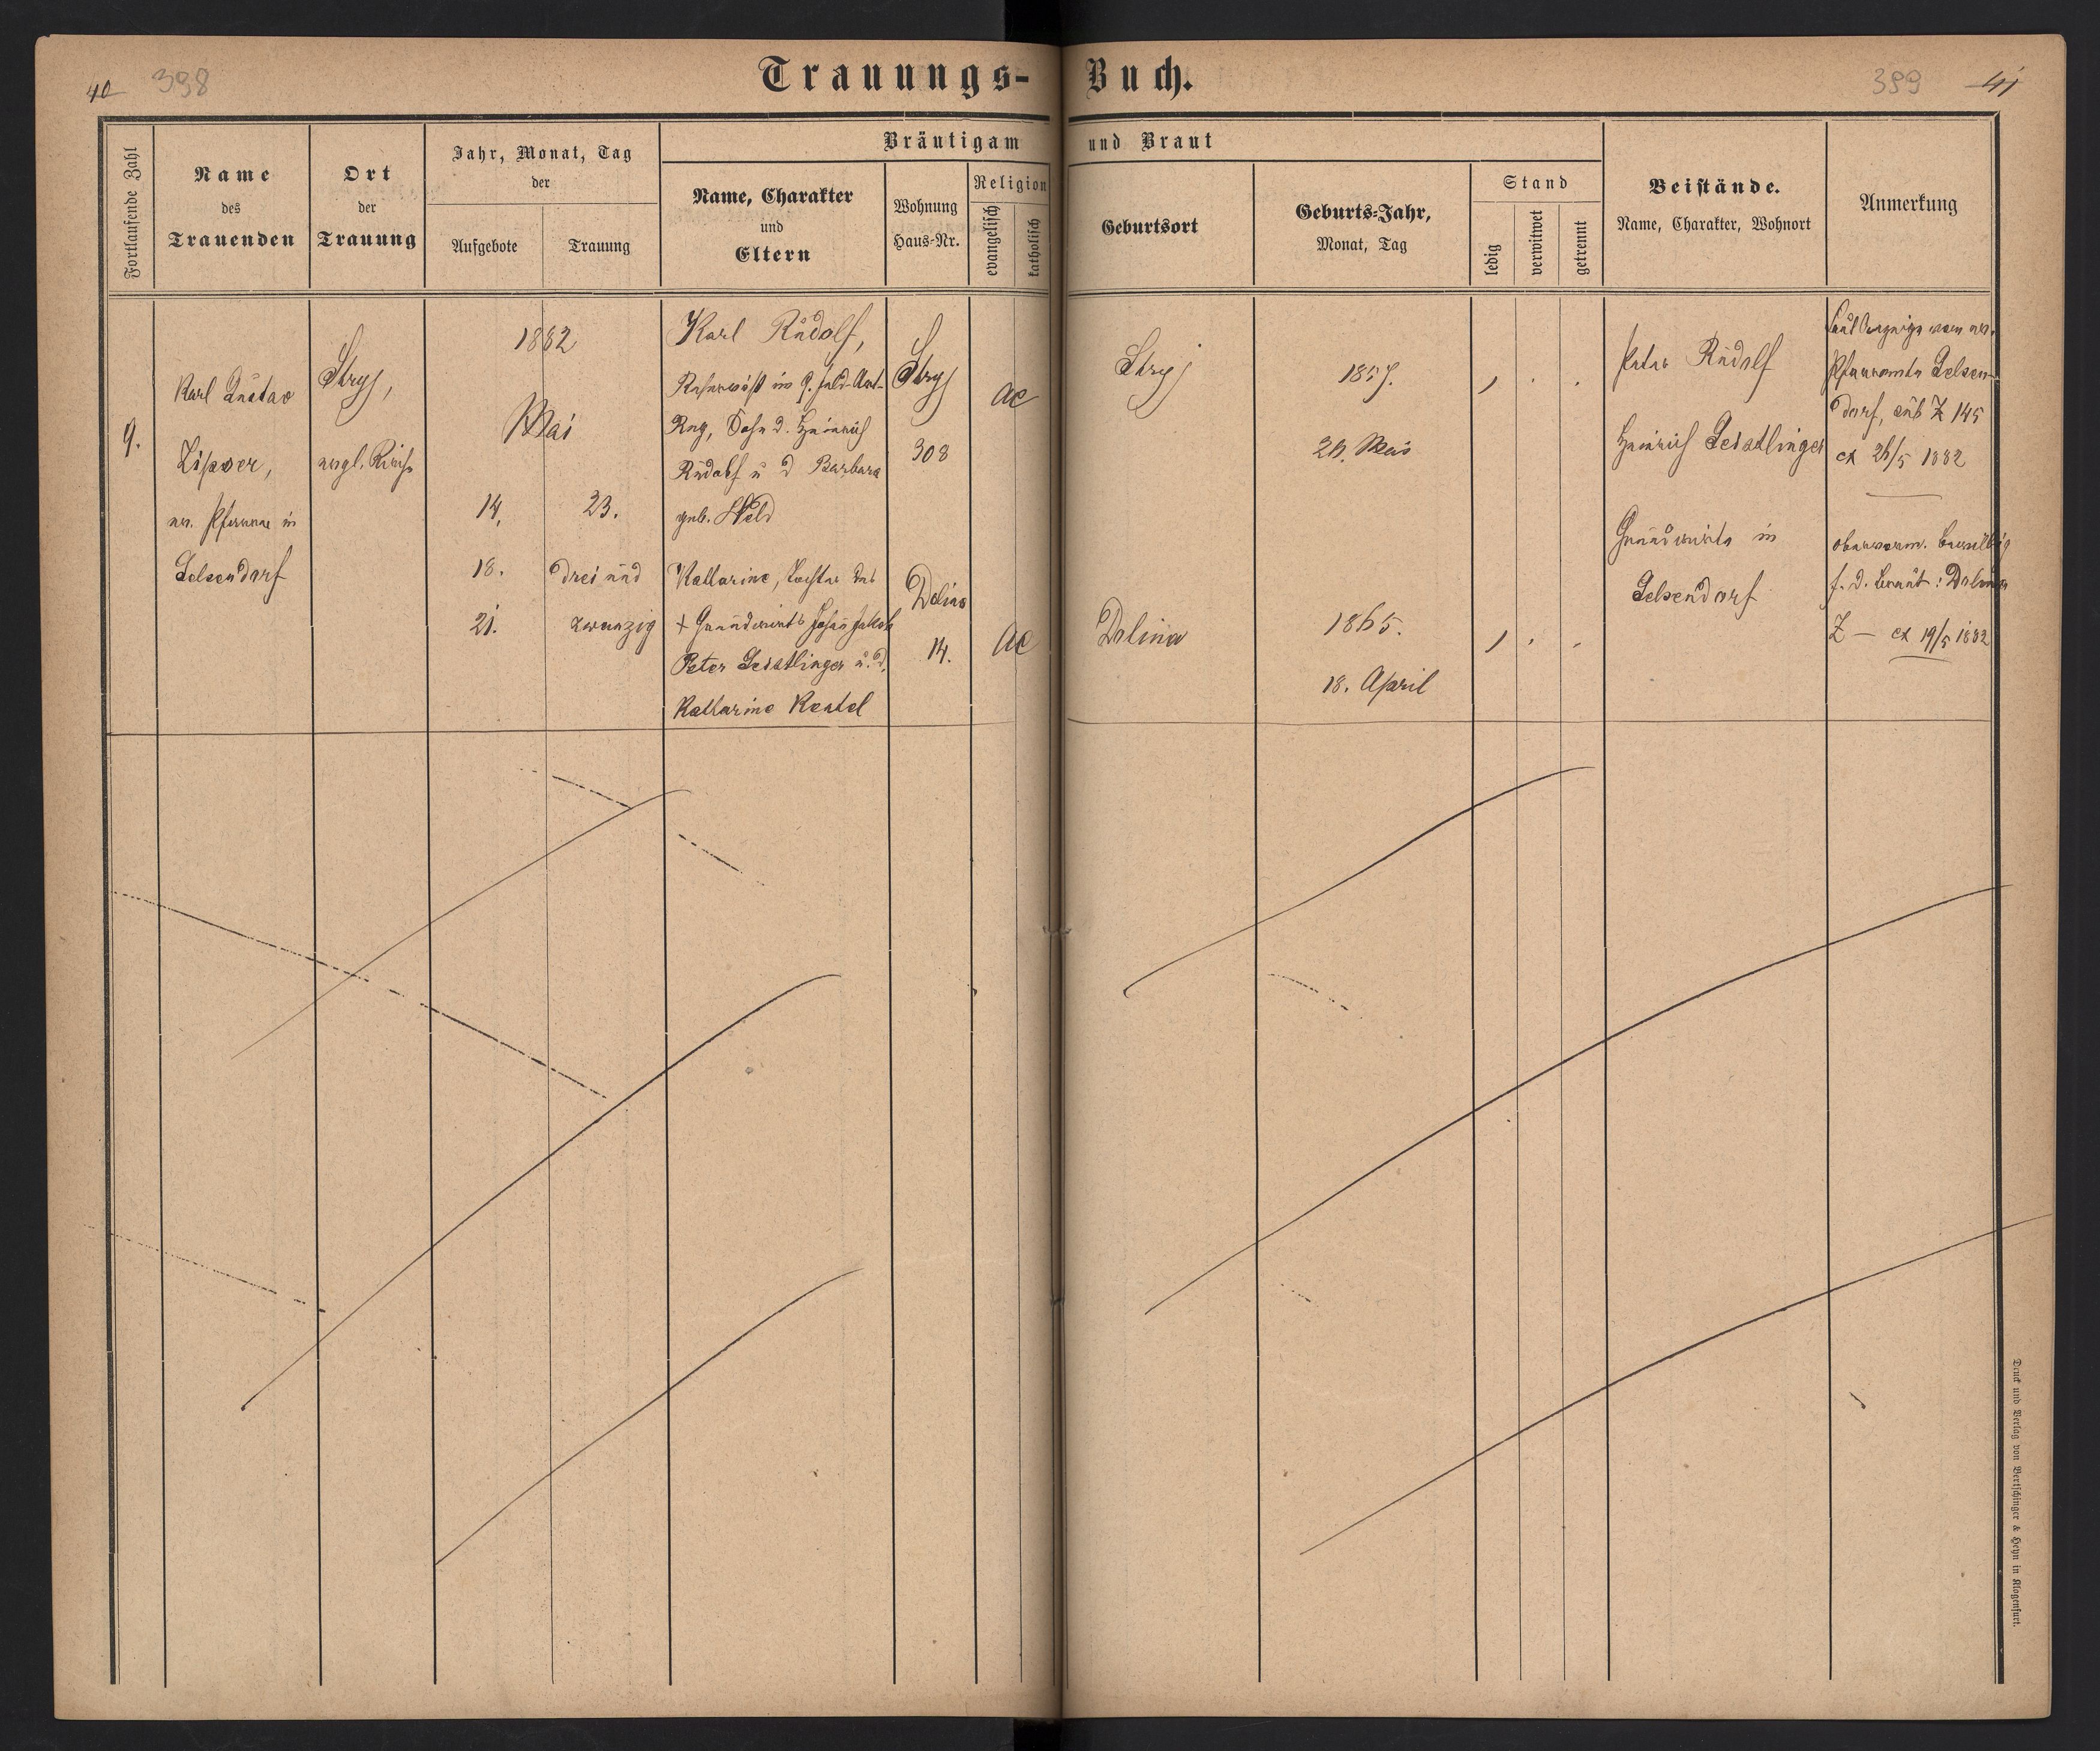 40 398
Trauungs-Buch.
389 41
Fortlaufende Zahl
Name
des
Trauenden
Ort
der
Trauung
Jahr, Monat, Tag
der
Aufgebote
Trauung
Bräutigam und Braut
Name, Charakter
und
Eltern
Wohnung
Haus-Nr.
Religion
evangelisch
katholisch
Geburtsort
Geburts-Jahr,
Monat, Tag
Stand
ledig
verwitwet
getrennt
Beistände.
Name, Charakter, Wohnort
Anmerkung
9.
Karl Gustav
Zipser,
ev. Pfarrer in
Gelsendorf
Stryj,
evgl. Kirche
1882
Mai
14.
18.
21.
23.
drei und
zwanzig
Karl Rudolf,
im 9. Feld-Art-
Rng, Sohn d. Heinrich
Rudolf u d Barbara
geb. Held
Katharine, Tochter des
+ Grundwirts Johann Jakob
Peter Geistlinger u. d.
Katharine Kentel
Stryj
308
Dolina
14.
AC
AC
Stryj
Dolina
1857.
26. Mai
1865.
18. April
Peter Rudolf
Heinrich Geistlinger
Grundwirte in
Gelsendorf
vom ev.
Pfarramte Gelsen-
dorf, sub Z 145
ex 26/5 1882
f. d. Braut: Dolina
Z — ex 19/5 1882
Druck und Verlag von Bertschinger & Heyn in Klagenfurt.